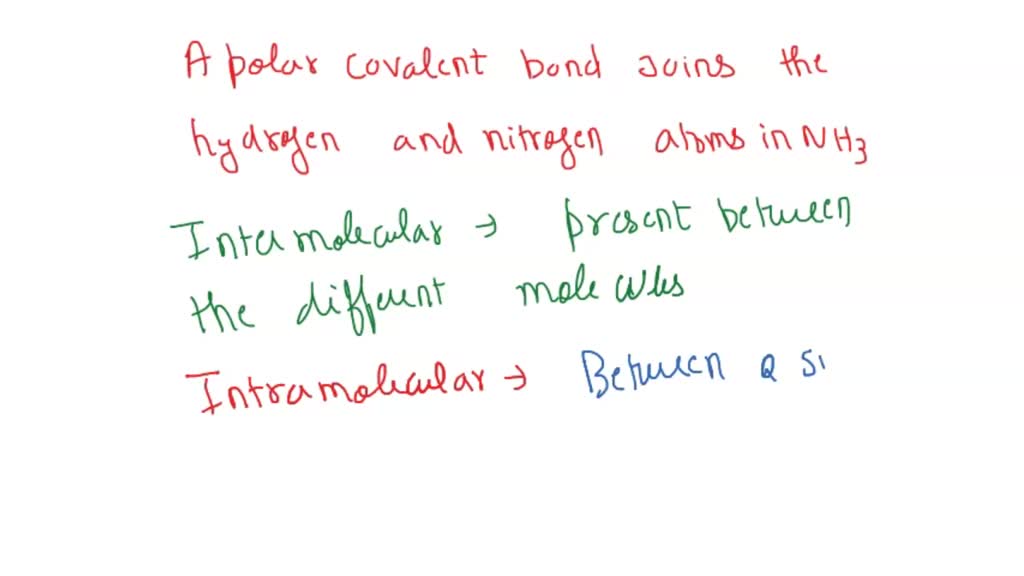 A polar covalent bond joins the
hydrogen and nitrogen atoms in NH3
Intermolecular → present between
the different molecules
Intramolecular → Between a si